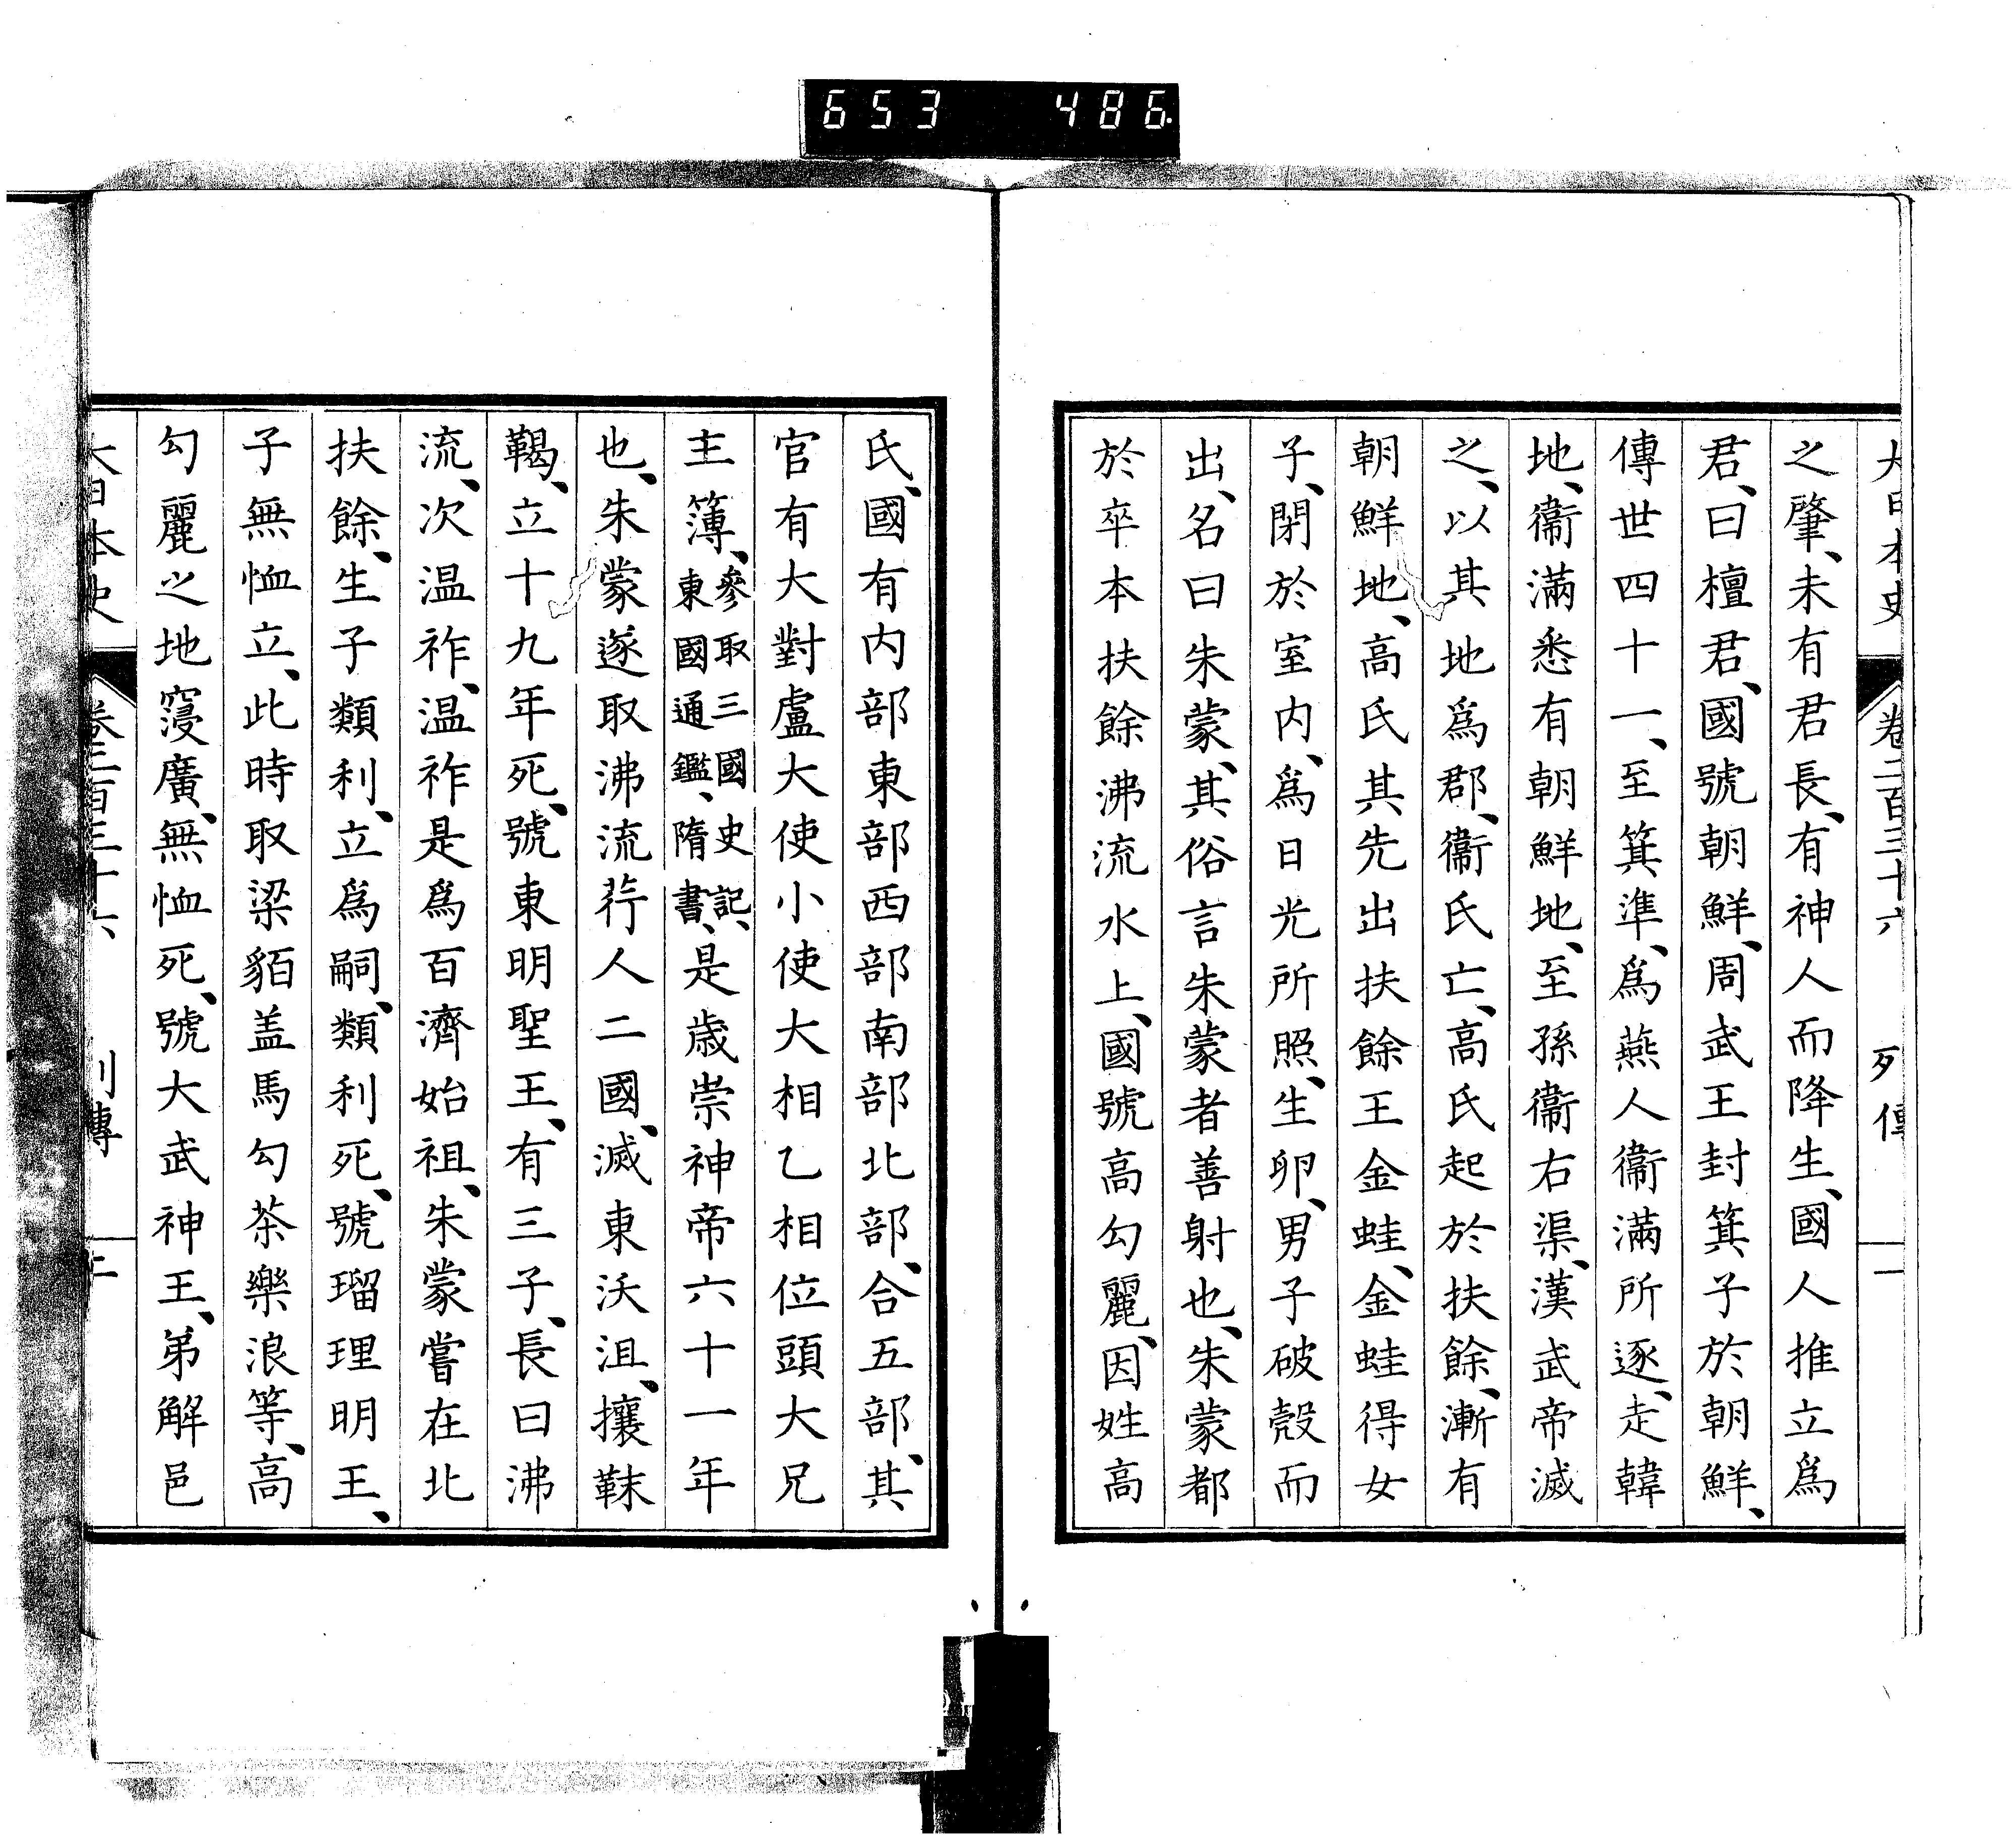 653 486
大日本史 卷二百三十六 列傳 一
之肇、未有君長、有神人而降生、國人推立爲
君、曰檀君、國號朝鮮、周武王封箕子於朝鮮、
傳世四十一、至箕準、爲燕人衞滿所逐、走韓
地、衞滿悉有朝鮮地、至孫衞右渠、漢武帝滅
之、以其地爲郡、衞氏亡、高氏起於扶餘、漸有
朝鮮地、高氏其先出扶餘王金蛙、金蛙得女
子、閉於室内、爲日光所照、生卵、男子破殼而
出、名曰朱蒙、其俗言朱蒙者善射也、朱蒙都
於卒本扶餘沸流水上、國號高勾麗、因姓高
氏、國有内部東部西部南部北部、合五部、其
官有大對盧大使小使大相乙相位頭大兄
主簿、參取三國史記、東國通鑑、隋書、是歳崇神帝六十一年
也、朱蒙遂取沸流荇人二國、滅東沃沮、攘靺
鞨、立十九年死、號東明聖王、有三子、長曰沸
流、次温祚、温祚是爲百濟始祖、朱蒙嘗在北
扶餘、生子類利、立爲嗣、類利死、號瑠理明王、
子無恤立、此時取梁貊盖馬勾茶樂浪等、高
勾麗之地寖廣、無恤死、號大武神王、弟解邑
大日本史 卷二百三十六 列傳